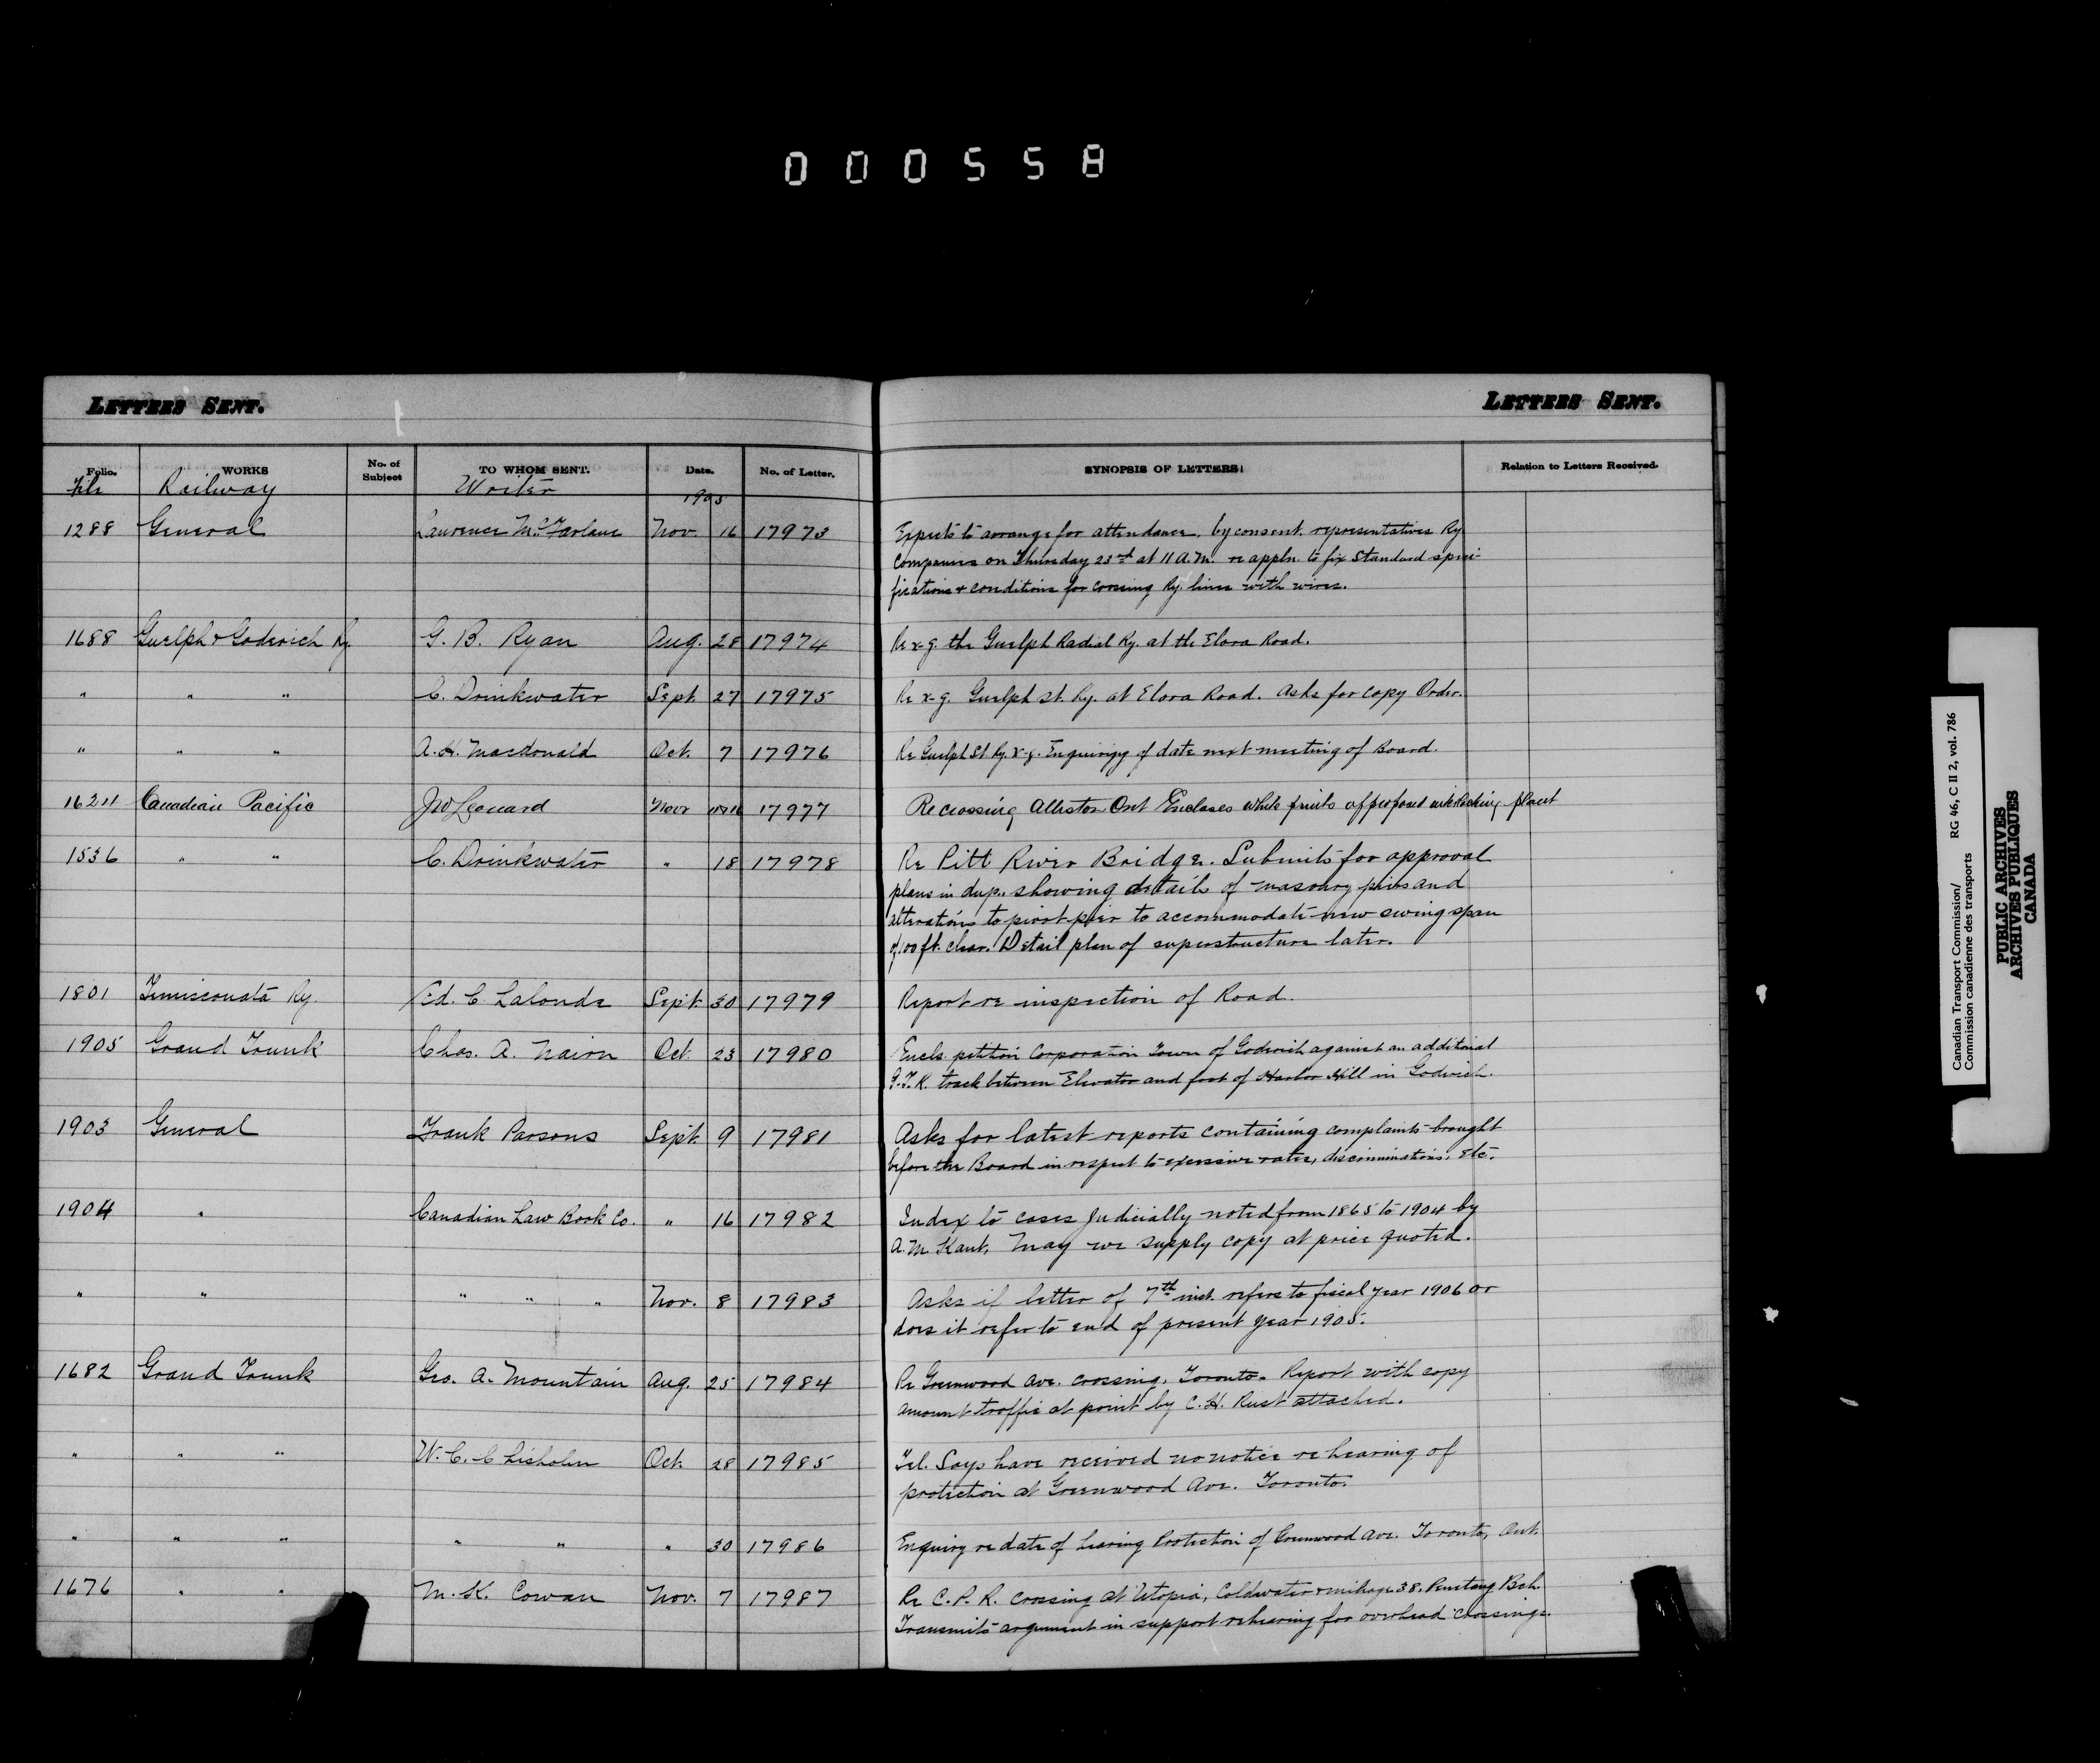 000558
LETTERS SENT.
LETTERS SENT.
Folio. WORKS No. of Subject TO WHOM SENT. Date. No. of Letter. SYNOPSIS OF LETTERS. Relation to Letters Received.
File Railway Writer 1905
1288 General Lawrence McFarlane Nov. 16 17973 Expects to arrange for attendance, by consent, representatives Ry
Companies on Thursday 23rd at 11 A.M. re appln. to fix Standard speci-
fications & conditions for crossing Ry. lines with wires.
1688 Guelph & Goderich Ry. G. B. Ryan Aug. 28 17974 Re x-g. the Guelph Radial Ry. at the Elora Road.
" " " C. Drinkwater Sept. 27 17975 Re x-g. Guelph St. Ry. at Elora Road. Asks for copy Order.
" " " A. H. Macdonald Oct. 7 17976 Re Guelph St. Ry. x-g. Enquiry of date next meeting of Board.
1624 Canadian Pacific JW Leonard Nov 17977 Re crossing Alliston Ont Encloses white prints of proposed interlocking plant
1536 " " C. Drinkwater " 18 17978 Re Pitt River Bridge. Submits for approval
plans in dup. showing details of masonry piers and
alterations to pivot pier to accommodate new swing span
of 100 ft. clear. Detail plan of superstructure later.
1801 Temiscouata Ry. Ed. C Lalonde Sept. 30 17979 Report re inspection of Road.
1905 Grand Trunk Chas. A. Nairn Oct. 23 17980 Encls. petition Corporation Town of Goderich against an additional
G.T.R. track between Elevator and foot of Harbor Hill in Goderich.
1903 General Frank Parsons Sept. 9 17981 Asks for latest reports containing complaints brought
before the Board in respect to excessive rates, discriminations, etc.
1904 " Canadian Law Book Co. " 16 17982 Index to cases judicially noted from 1865 to 1904 by
A. M. Kant. May we supply copy at price quoted.
" " " " " Nov. 8 17983 Asks if letter of 7th inst. refers to fiscal year 1906 or
does it refer to end of present year 1905.
1682 Grand Trunk Geo. A. Mountain Aug. 25 17984 Re Greenwood Ave. crossing, Toronto. Report with copy
amount traffic at point by C. H. Rust attached.
" " " W. C. Chisholm Oct. 28 17985 Tel. Says have received no notice re hearing of
protection at Greenwood Ave. Toronto.
" " " " " " 30 17986 Enquiry re date of hearing Protection of Greenwood Ave. Toronto, Ont.
1676 " " M. K. Cowan Nov. 7 17987 Re C.P.R. crossing at Utopia, Coldwater & mileage 38, Penetang Bch.
Transmits argument in support rehearing for overhead crossings.
Canadian Transport Commission/ RG 46, C II 2, vol. 786
Commission canadienne des transports
PUBLIC ARCHIVES
ARCHIVES PUBLIQUES
CANADA